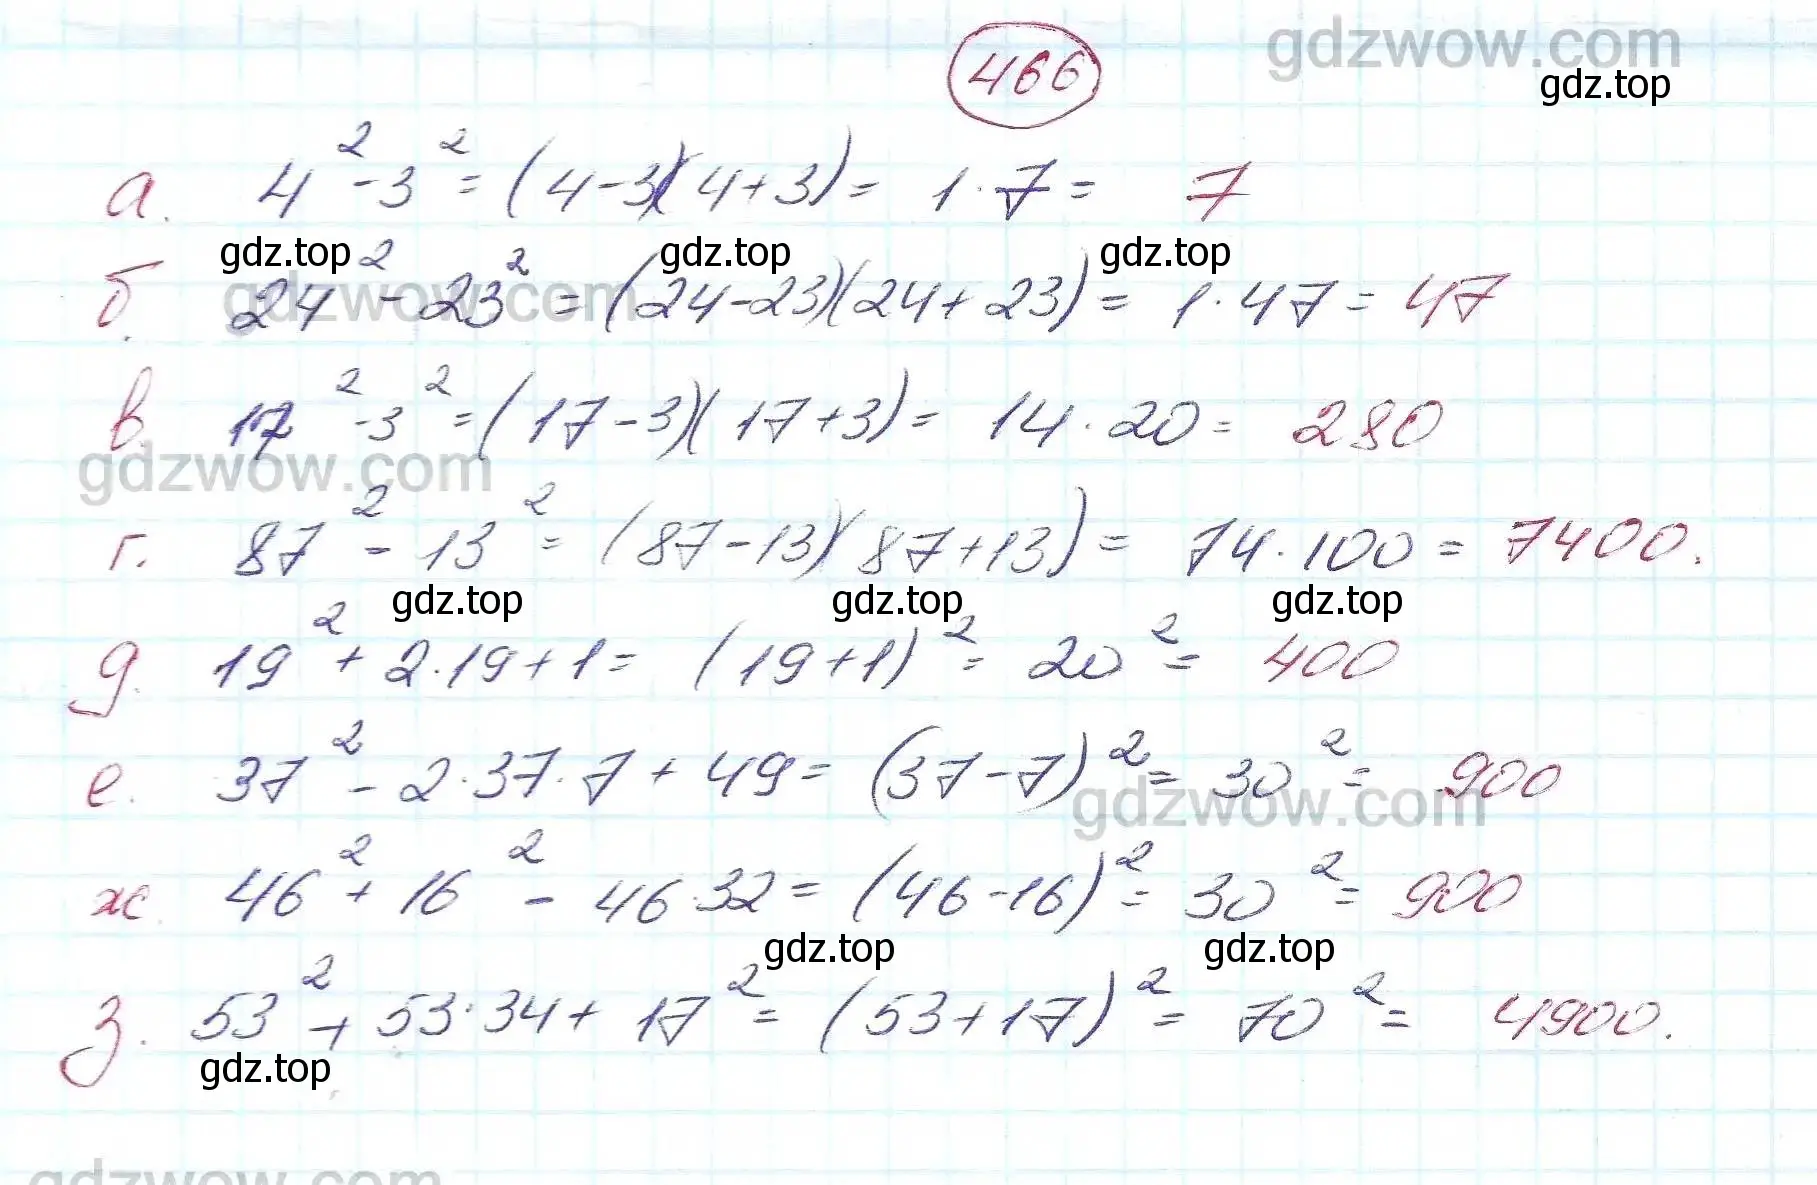 gdzwow.com
466
gdz.top
а. 4² - 3² = (4-3)(4+3) = 1·7 = 7
gdz.top gdz.top gdz.top
б. 24² - 23² = (24-23)(24+23) = 1·47 = 47
gdzwow.com
в. 17² - 3² = (17-3)(17+3) = 14·20 = 280
gdzwow.com
г. 87² - 13² = (87-13)(87+13) = 74·100 = 7400.
gdz.top gdz.top gdz.top
д. 19² + 2·19 + 1 = (19+1)² = 20² = 400
е. 37² - 2·37·7 + 49 = (37-7)² = 30² = 900
gdzwow.com
ж. 46² + 16² - 46·32 = (46-16)² = 30² = 900
gdz.top gdz.top
з. 53² + 53·34 + 17² = (53+17)² = 70² = 4900.
gdz.top
gdzwow.com